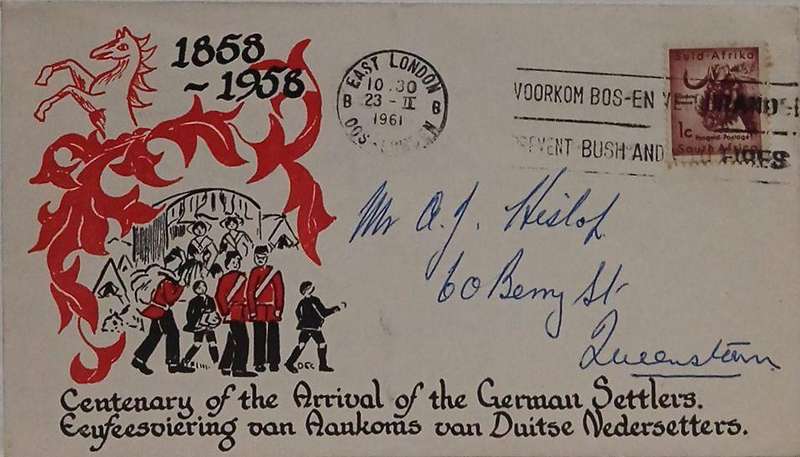 1858
~1958
EAST LONDON
10.30
B 23-II B
1961
OOS
VOORKOM BOS-EN
PREVENT BUSH AND FIRES
Suid-Afrika
1c
Posgeld Postage
South Africa
Mr A.J. Hislop
60 Berry St
Queenstown
Centenary of the Arrival of the German Settlers.
Eeufeesviering van Aankoms van Duitse Nedersetters.